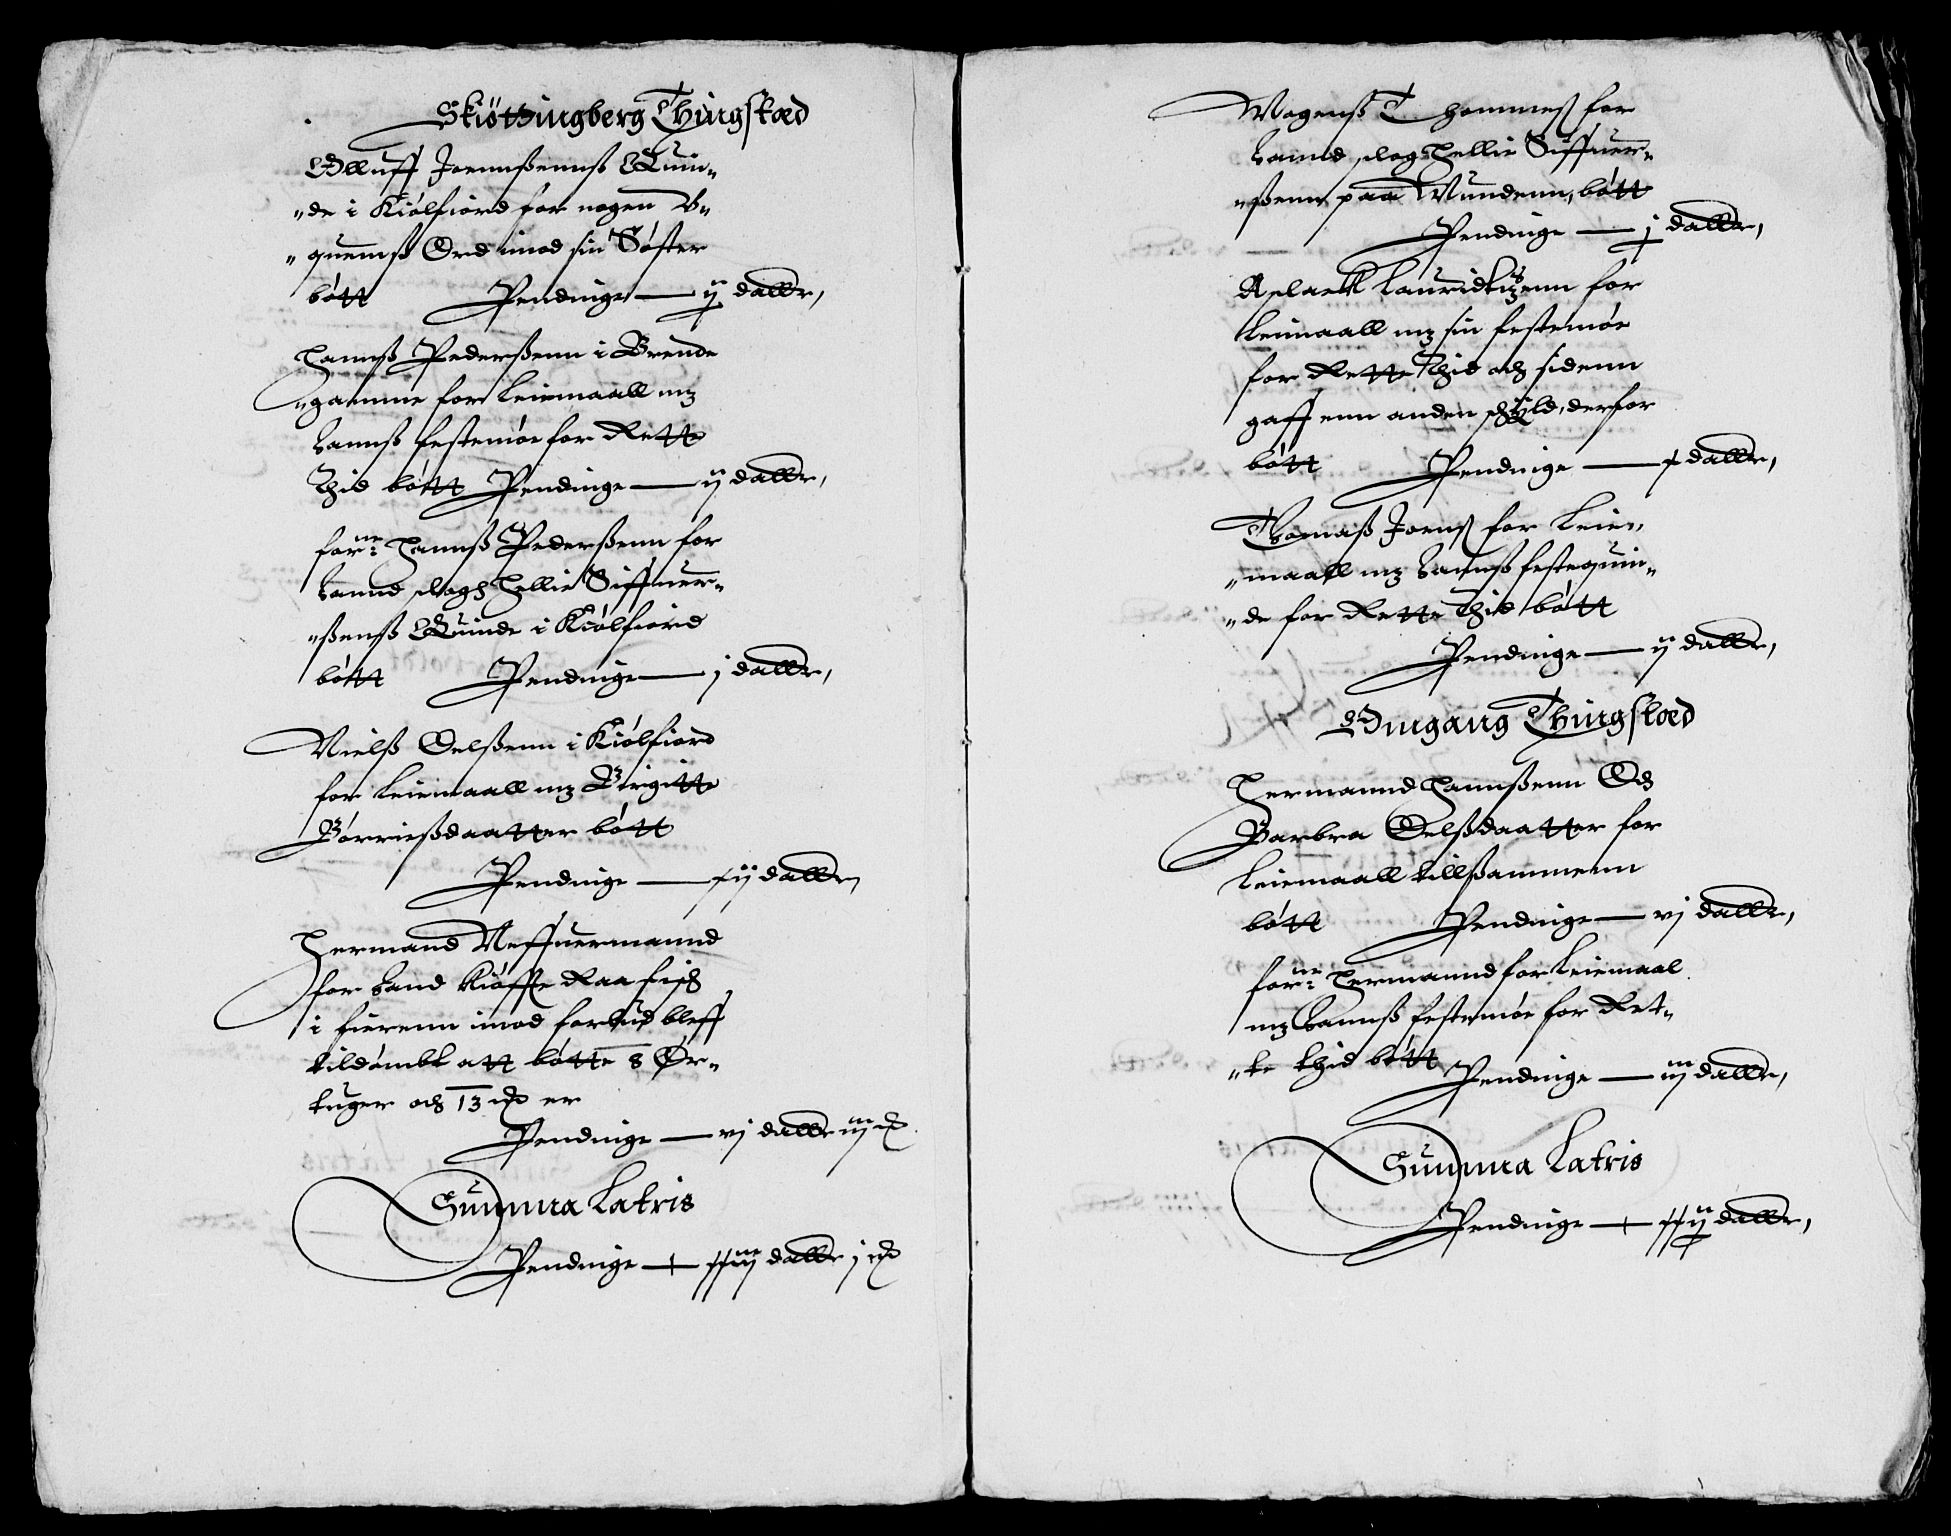 Skiøttingberg Thingstæd
Olluff Joennßennß Quin„
„de i Kiølfiord for nogen V„
„quemß Ord imod sin Søster
bøtt Pendinge — ij daller,
Hannß Pederßenn i Brende
„gamme for Leiermaall mz
hannß festemøe for Rette
Thid bøtt Pendinge — ij daller,
forne: Hannß Pederßenn for
hannd slogh Hellie Siffuer„
„ßenß Quinde i Kiølfiord
bøtt Pendinge — j daller,
Nielß Oelßenn i Kiølfiord
for Leiermaall mz Birgitte
Børrießdaatter bøtt
Pendinge — xij daller,
Hermand Neffuermannd
for hand Kiøffte Raa fisch
i fierenn imod forbud bleff
tildømbt att bøtte 8 Ør„
tuger och 13 ß er
Pendinge — vj daller iij ß
Summa Latris
Pendinge — xxiij daller j ß
Mogenß Thommeß for
hannd slog Hellie Siffuer„
„ßenn paa Mundenn, bøtt
Pendinge — j daller,
Aslack Lauridtzenn for
Leimaall mz sin festemøe
for Rette Thid och sidenn
gaff enn anden schyld, derfor
bøtt Pendinge — x daller,
Thomaß Joenß for Leier„
„maall mz hannß festequin„
„de for Rette Thid bøtt
Pendinge — ij daller,
Omgang Thingstæd
Hermannd Hannßenn Och
Barbra Oelßdaatter for
Leiermaall tillßammenn
bøtt Pendinge — vj daller,
forne: Hermannd for Leiermaal
mz hannß festemøe for Ret„
„te thid bøtt Pendinge — iij daller,
Summa Latris
Pendinge — xxij daller,